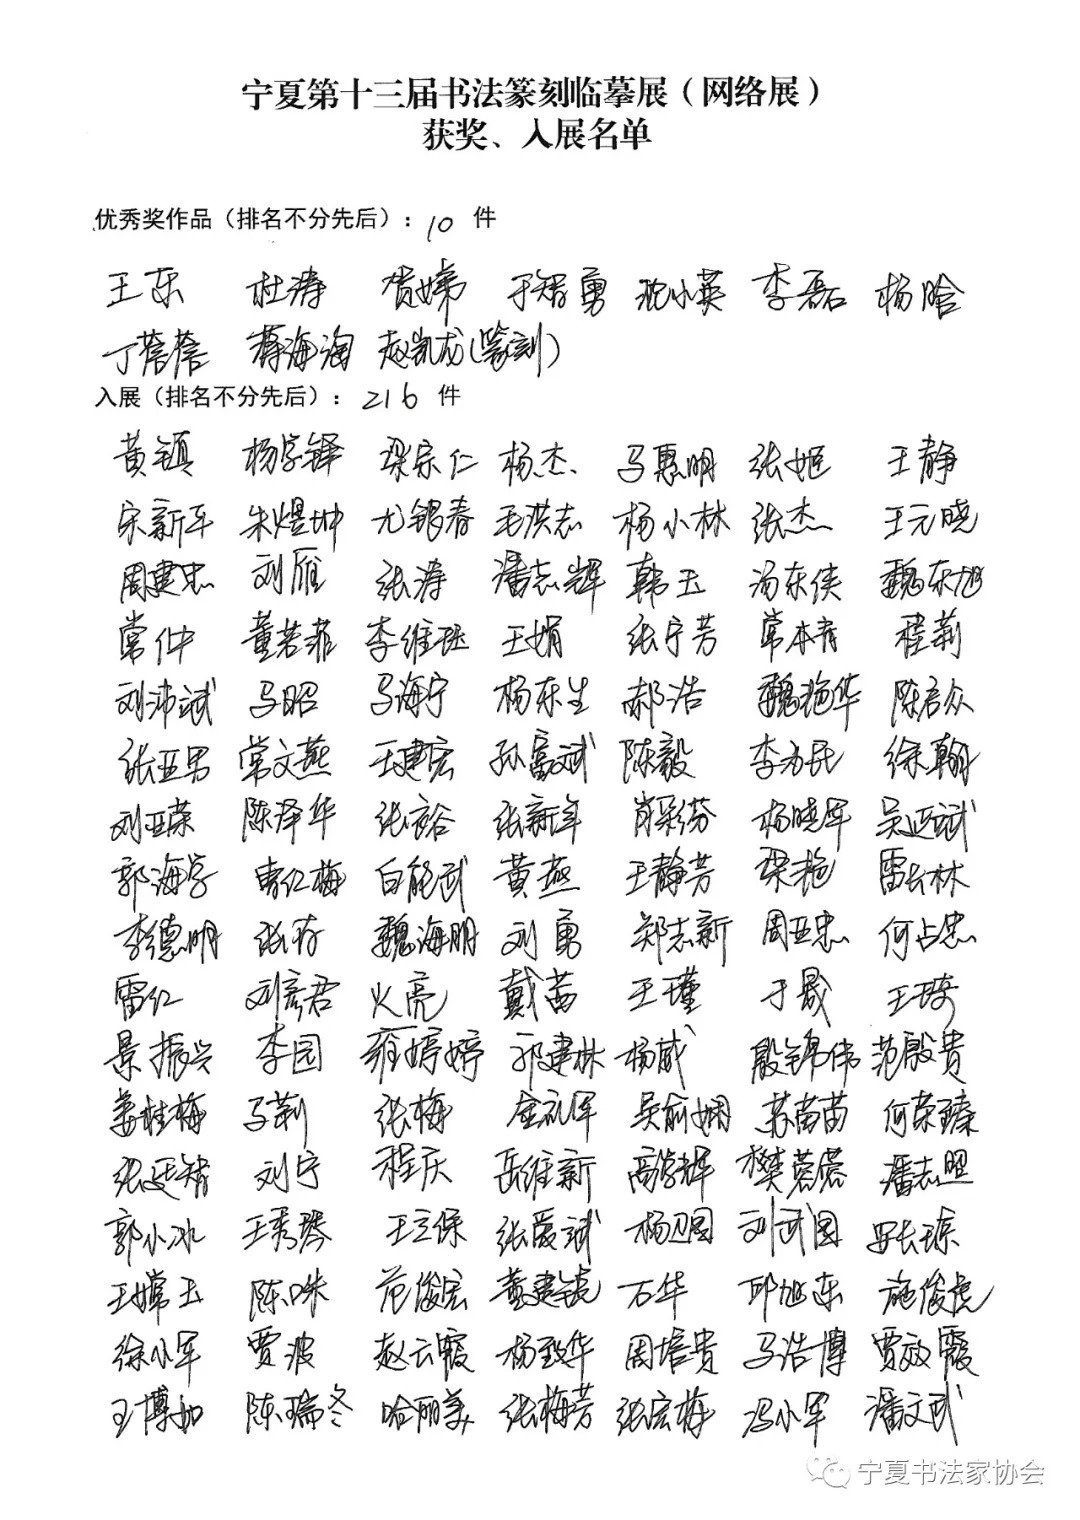 宁夏第十三届书法篆刻临摹展（网络展）
获奖、入展名单
优秀奖作品（排名不分先后）：10 件
王东 杜涛 贺嫦 于智勇 沈小英 李磊 杨晗
丁蓉蓉 蒋海淘 赵凯龙(篆刻)
入展（排名不分先后）：216 件
黄镇 杨学铎 梁宗仁 杨杰 马惠明 张姬 王静
宋新平 朱煜坤 尤银春 毛洪志 杨小林 张杰 王元晓
周建忠 刘雁 张涛 潘志辉 韩玉 汤东侠 魏东旭
常仲 董若菲 李维珏 王娟 张宁芳 常本青 程莉
刘沛斌 马昭 马海宁 杨东生 郝浩 魏艳华 陈启众
张亚男 常文燕 王建宏 孙富斌 陈毅 李为民 徐翰
刘亚荣 陈泽华 张裕 张新年 肖彩芬 杨晓军 吴延斌
郭海字 曹红梅 白能武 黄燕 王静芳 梁艳 雷长林
李德明 张存 魏海明 刘勇 郑志新 周亚忠 何占忠
雷红 刘彦君 火亮 戴茜 王瑾 于晟 王琦
景振兴 李园 雍婷婷 郭建林 杨威 殷锦伟 范殷贵
姜桂梅 马莉 张梅 金礼军 吴俞娴 苏苗苗 何荣臻
张廷智 刘宁 程庆 岳维新 高学辉 樊蓉蓉 潘志照
郭小冰 王秀琴 王立保 张爱斌 杨卫国 刘武国 安长琼
王嫦玉 陈咏 范俊宏 董建镜 石华 邱旭东 施俊虎
徐小军 贾波 赵云霞 杨致华 周培贵 马浩博 贾效霞
王博加 陈瑞冬 哈丽美 张梅芳 张宏梅 冯小军 潘文武
宁夏书法家协会